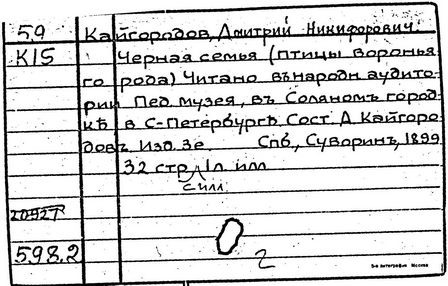 59 Кайгородов, Дмитрий Никифорович.
К15 Черная семья (птицы воронья
го рода) Читано вънародн. аудито-
рии Пед. музея, въ Соляном город-
кѣ, в С-Петербургѣ Сост. Д. Кайгоро-
довъ. Изд. 3е. Спб., Суворинъ, 1899
32 стр, 1л. илл
с илл.
20927
598.2
2
5-я типография Москва